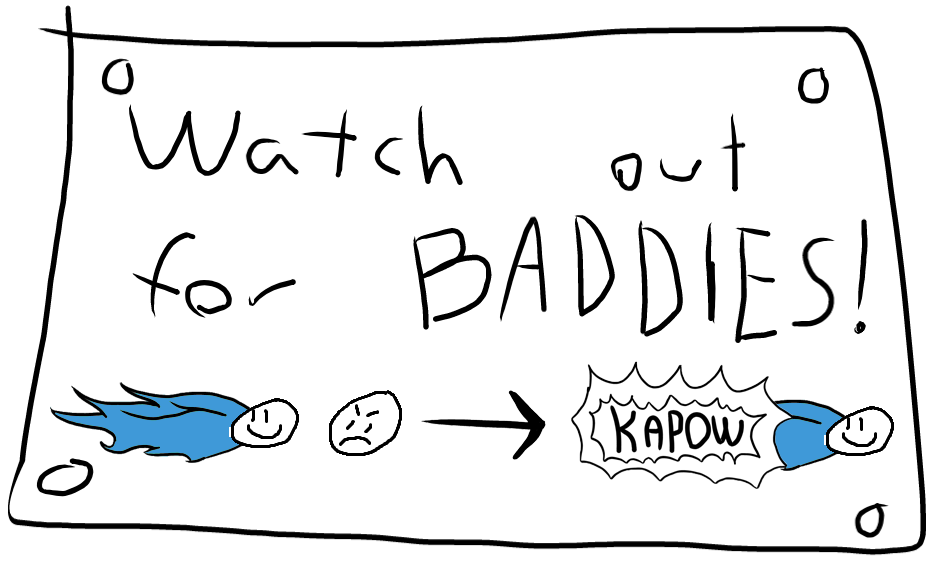 Watch out
for BADDIES!
KAPOW